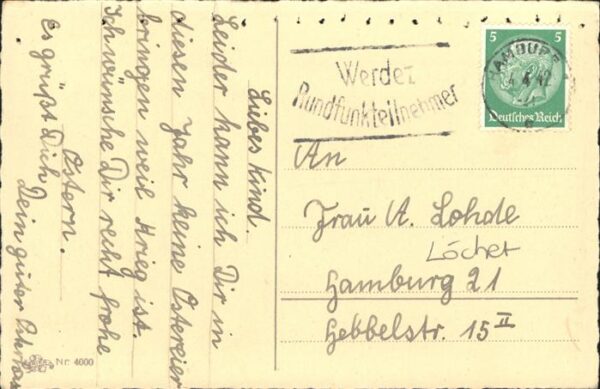 Liebes Kind.
Leider kann ich Dir in
diesen Jahr keine Ostereier
bringen weil Krieg ist.
Ich wünsche Dir recht frohe
Ostern.
Es grüßt Dich
Dein guter
Nr. 4000
Werdet
Rundfunkteilnehmer
HAMBURG
4.4.42
5 5
Deutsches Reich
An
Frau A. Lohde
Löcher
Hamburg 21
Hebbelstr. 15 II